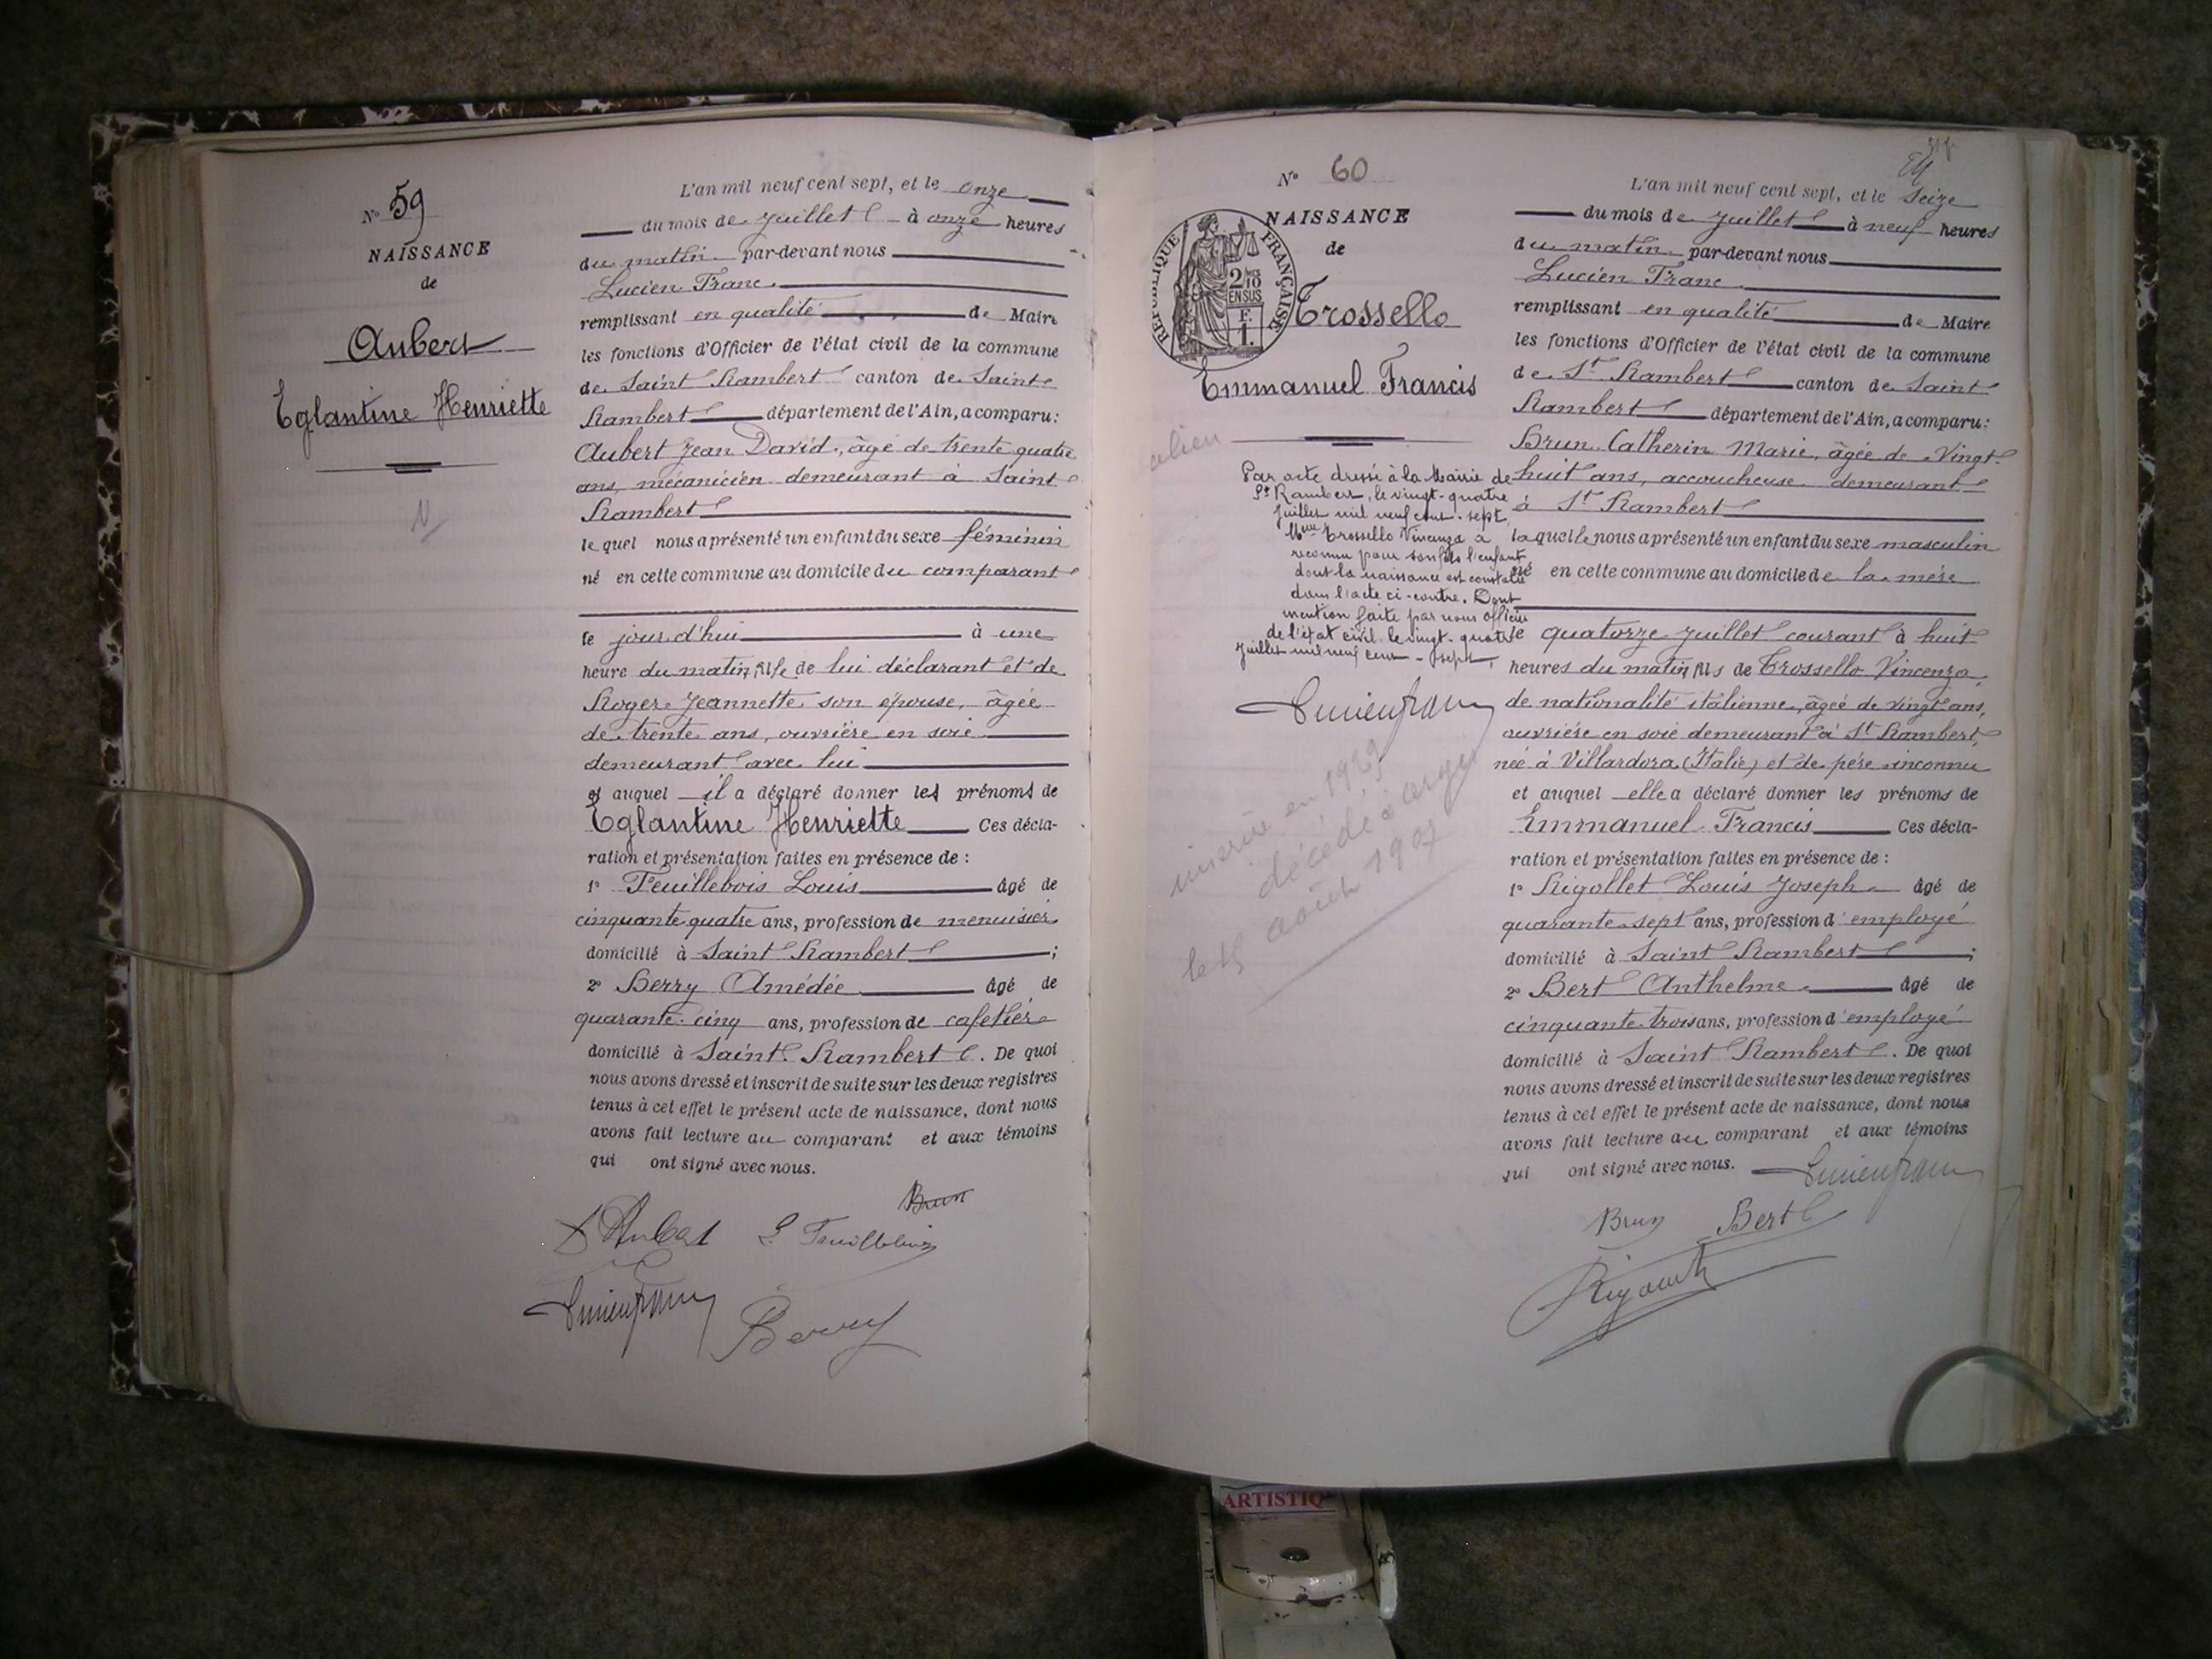 N° 59
NAISSANCE
de
Aubert
Eglantine Henriette
L'an mil neuf cent sept, et le onze
du mois de Juillet à onze heures
du matin par-devant nous
Lucien Franc
remplissant en qualité de Maire
les fonctions d'Officier de l'état civil de la commune
de Saint Rambert canton de Saint
Rambert département de l'Ain, a comparu:
Aubert Jean David, âgé de trente quatre
ans, mécanicien demeurant à Saint
Rambert
le quel nous a présenté un enfant du sexe féminin
né en cette commune au domicile du comparant
le jour d'hui à une
heure du matin, fille de lui déclarant et de
Roger Jeannette son épouse, âgée
de trente ans, ouvrière en soie
demeurant avec lui
et auquel il a déclaré donner les prénoms de
Eglantine Henriette Ces décla-
ration et présentation faites en présence de :
1° Feuillebois Louis âgé de
cinquante quatre ans, profession de menuisier
domicilié à Saint Rambert ;
2° Berry Amédée âgé de
quarante-cinq ans, profession de cafetier
domicilié à Saint Rambert. De quoi
nous avons dressé et inscrit de suite sur les deux registres
tenus à cet effet le présent acte de naissance, dont nous
avons fait lecture au comparant et aux témoins
qui ont signé avec nous.
Brun
D Aubert L Feuillebois
Lucien Franc
Berry
N° 60
NAISSANCE
de
RÉPUBLIQUE FRANÇAISE
2/10
EN SUS
F.
1.
Trossello
Emmanuel Francis
Par acte dressé à la Mairie de
St Rambert, le vingt-quatre
Juillet mil neuf cent-sept,
Mme Trossello Vincenza a
reconnu pour son fils l'enfant
dont la naissance est constatée
dans l'acte ci-contre. Dont
mention faite par nous officier
de l'état civil le vingt-quatre
Juillet mil neuf cent-sept,
Lucien Franc
décédé à
août 1907
L'an mil neuf cent sept, et le Seize
du mois de Juillet à neuf heures
du matin par-devant nous
Lucien Franc
remplissant en qualité de Maire
les fonctions d'Officier de l'état civil de la commune
de St Rambert canton de Saint
Rambert département de l'Ain, a comparu:
Brun Catherin Marie, âgée de Vingt
huit ans, accoucheuse demeurant
à St Rambert
laquelle nous a présenté un enfant du sexe masculin
né en cette commune au domicile de la mère
le quatorze Juillet courant à huit
heures du matin, fils de Trossello Vincenza,
de nationalité italienne, âgée de vingt ans,
ouvrière en soie demeurant à St Rambert,
née à Villardora (Italie) et de père inconnu
et auquel elle a déclaré donner les prénoms de
Emmanuel Francis Ces décla-
ration et présentation faites en présence de :
1° Rigollet Louis Joseph âgé de
quarante-sept ans, profession d'employé
domicilié à Saint Rambert ;
2° Bert Anthelme âgé de
cinquante-trois ans, profession d'employé
domicilié à Saint Rambert. De quoi
nous avons dressé et inscrit de suite sur les deux registres
tenus à cet effet le présent acte de naissance, dont nous
avons fait lecture au comparant et aux témoins
qui ont signé avec nous. Lucien Franc
Brun Bert
ARTISTIQ